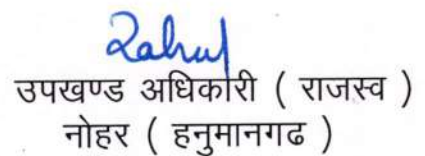 Rahul
उपखण्ड अधिकारी ( राजस्व )
नोहर ( हनुमानगढ )